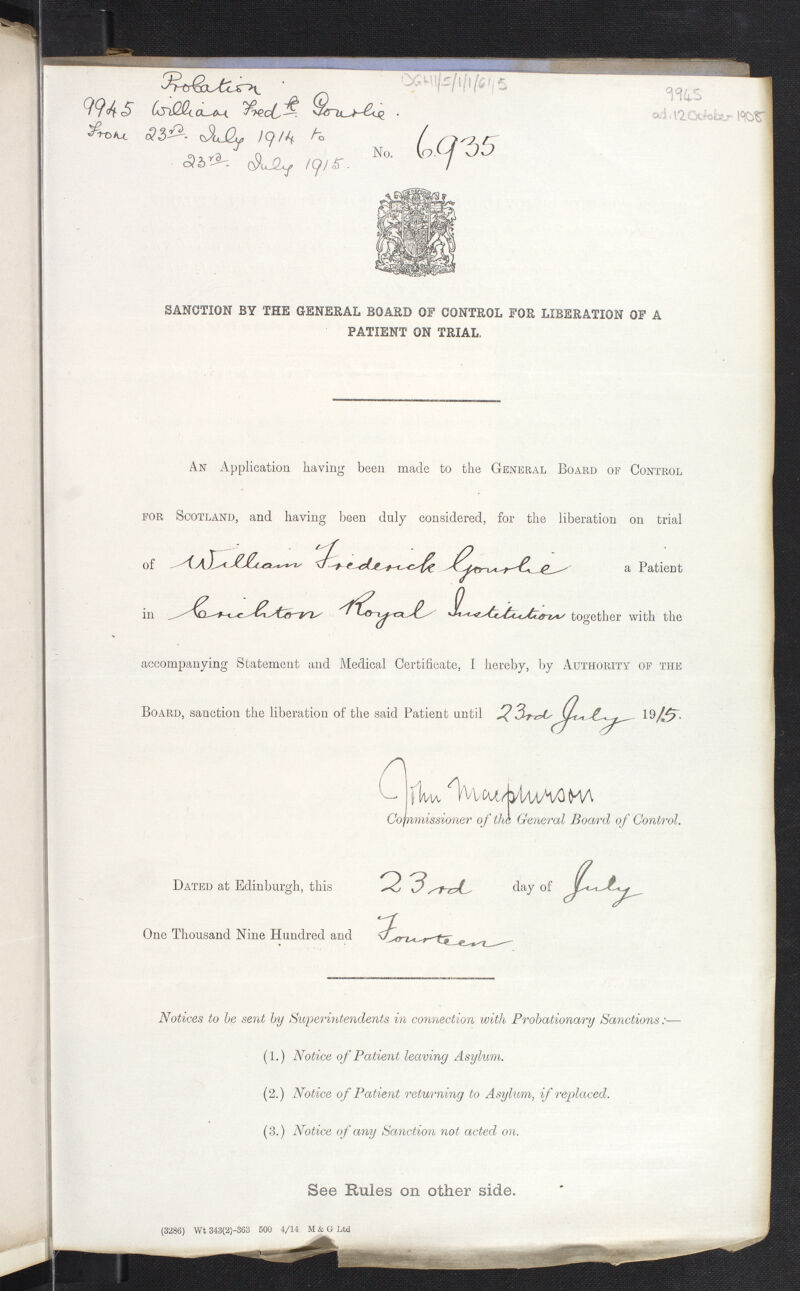 Probation
DGH1/5/1/1/61/5
9945
ad. 12 October 1908
9945 William Fredk. Gourlie.
From 23rd. July 1914 to
23rd. July 1915.
No. 6935
SANCTION BY THE GENERAL BOARD OF CONTROL FOR LIBERATION OF A
PATIENT ON TRIAL.
AN Application having been made to the GENERAL BOARD OF CONTROL
FOR SCOTLAND, and having been duly considered, for the liberation on trial
of William Frederick Gourlie a Patient
in Crichton Royal Institution together with the
accompanying Statement and Medical Certificate, I hereby, by AUTHORITY OF THE
BOARD, sanction the liberation of the said Patient until 23rd July 1915.
John Macpherson
Commissioner of the General Board of Control.
DATED at Edinburgh, this 23rd day of July
One Thousand Nine Hundred and Fourteen
Notices to be sent by Superintendents in connection with Probationary Sanctions:—
(1.) Notice of Patient leaving Asylum.
(2.) Notice of Patient returning to Asylum, if replaced.
(3.) Notice of any Sanction not acted on.
See Rules on other side.
(3286) Wt 343(2)-363 500 4/14 M & G Ltd